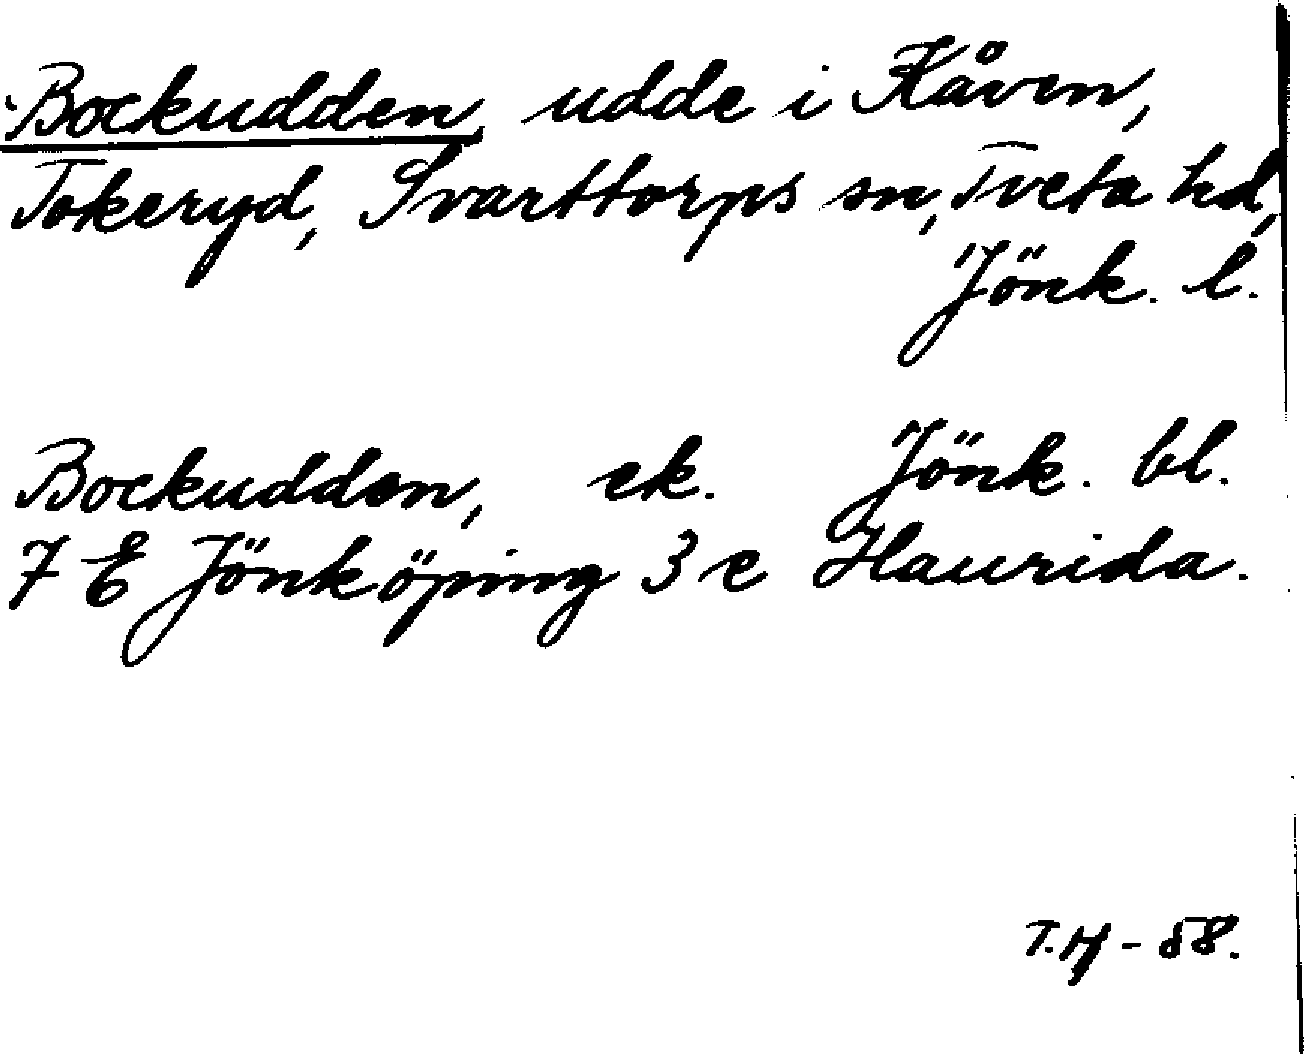 Bockudden, udde i Kåven,
Tokeryd, Svarttorps sn, Tveta hd,
Jönk. l.
Bockudden, ek. Jönk. bl.
7 E Jönköping 3 e Haurida.
T.H - 58.